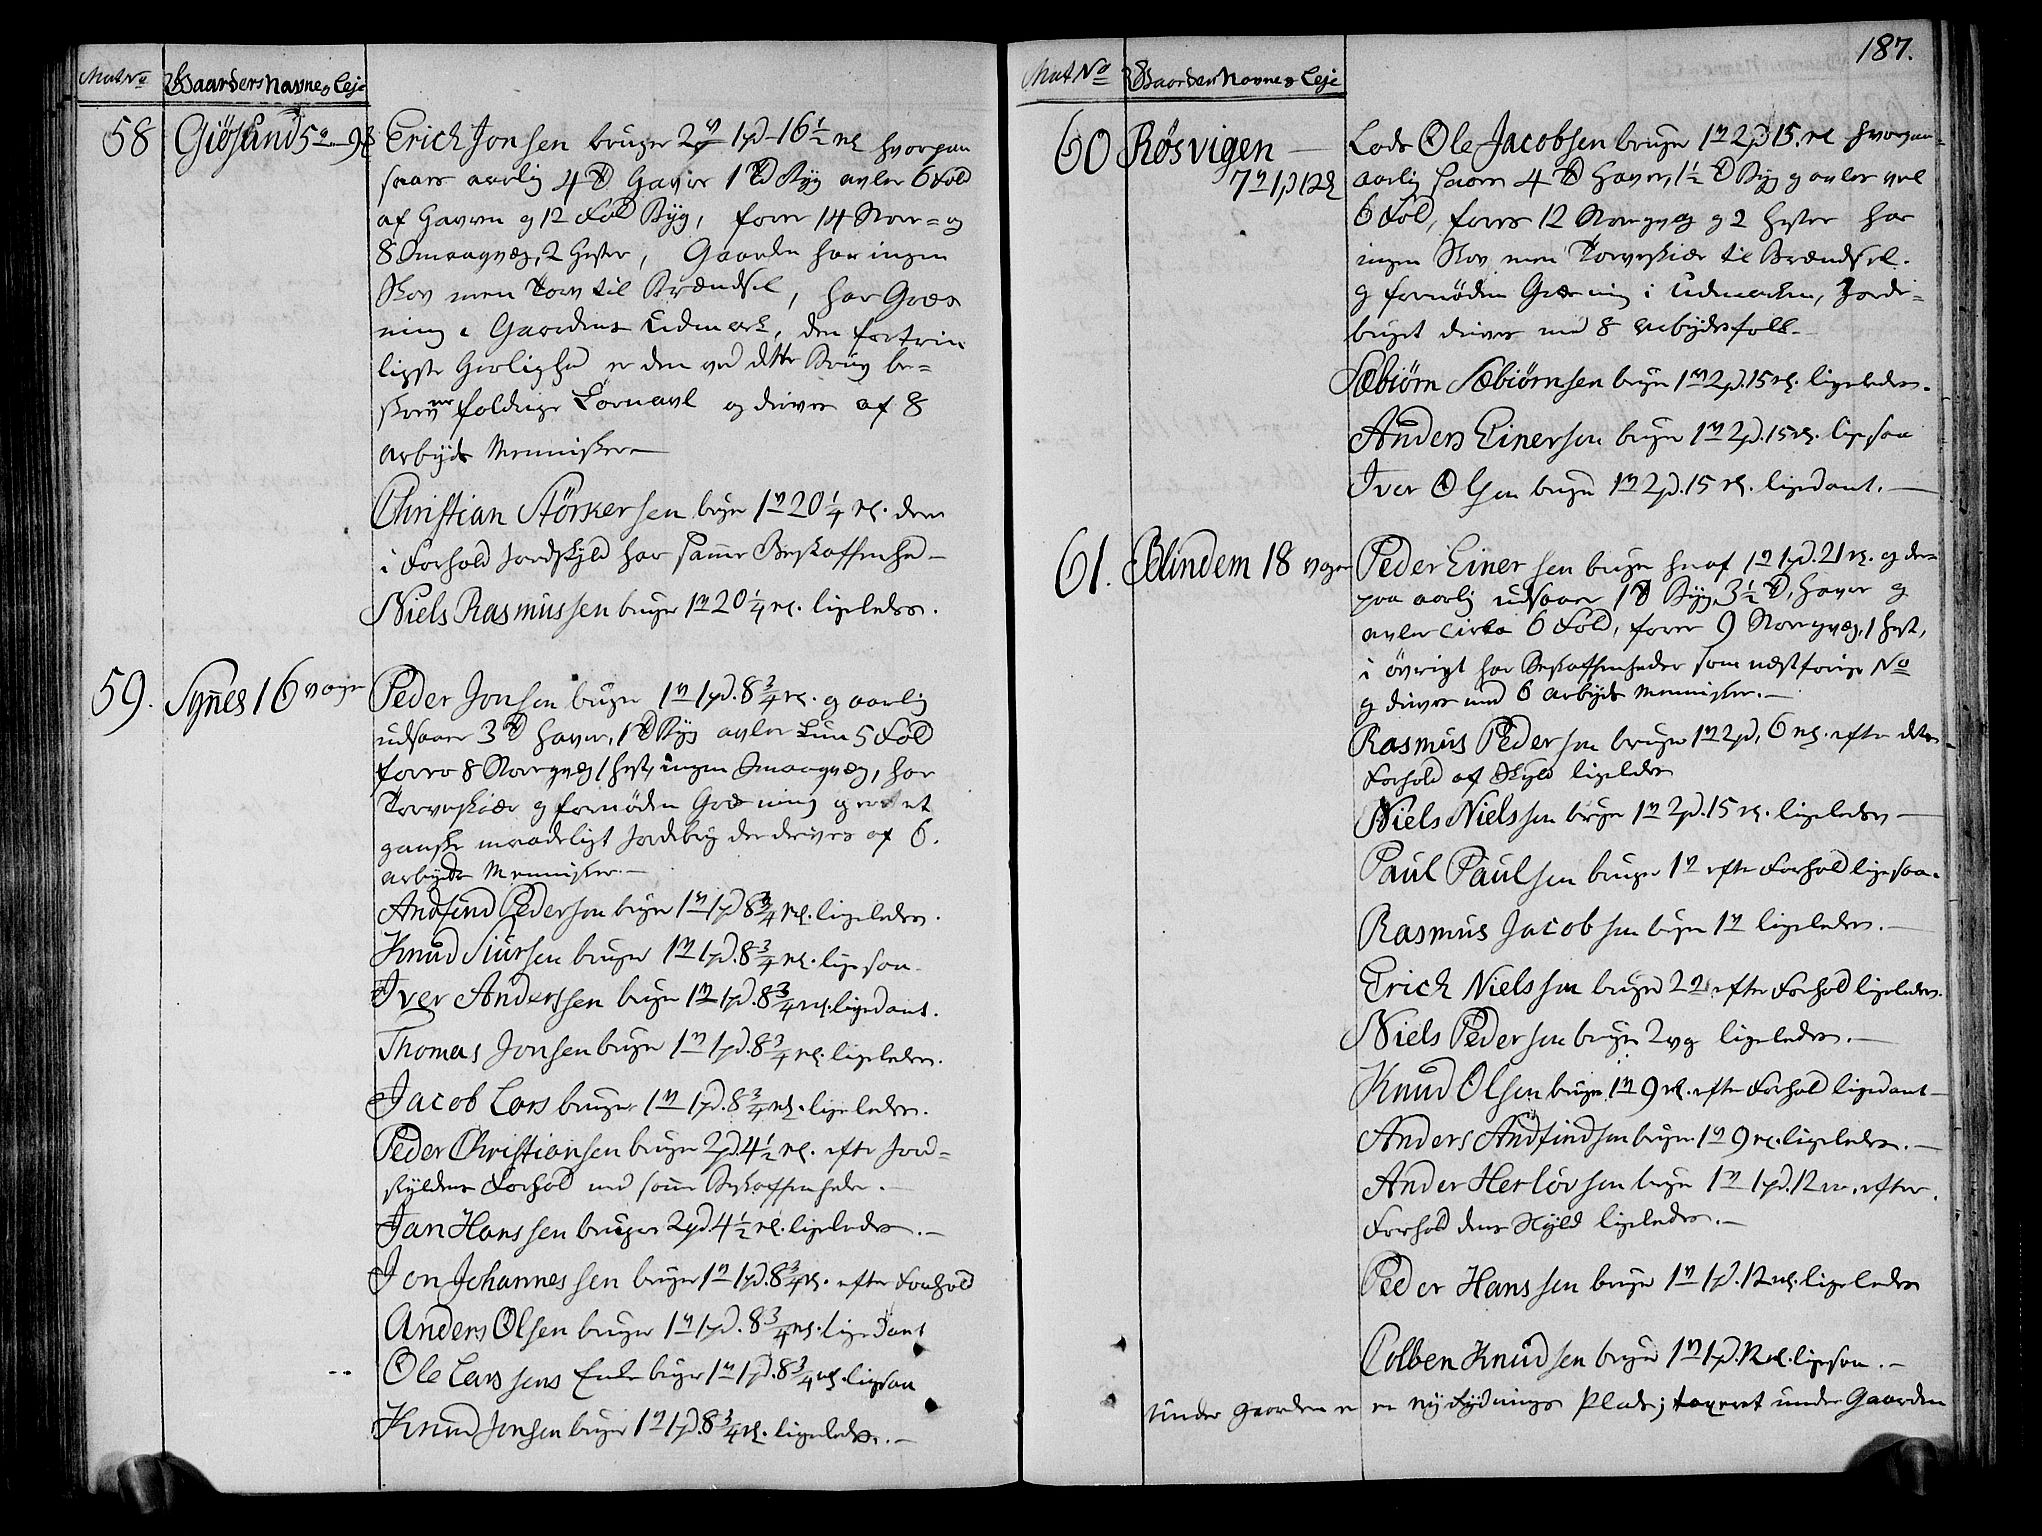 Mat No
Gaardens Navne & Leje
58
Giösund 5
Erich Jonsen bruger 2 1pd 16½ hvorpaa
saaes aarlig 4 Td Havre 1 Td Byg avler 6 Fold
af Havren og 12 Fold Byg, foer 14 Stor- og
8 Smaaqvæg, 2 Heste, Gaarden har ingen
Skov men Torv til Brændsel, har Græs
ning i Gaardens Udmark, den fortrin
ligste Herlighed er den ved dette Brug be-
foldige Kornavl og drives af 8
arbeyds Mennisker
Christian Störkersen bruger 1 20¼ der
i Forhold Jordskyld har samme Beskaffenhed
Niels Rasmussen bruger 1 20¼ ligeledes.
59.
Synes 16 voger
Peder Jonsen bruger 1 1pd. 8¾ og aarlig
udsaaer 3 Td Havre, 1 Td Byg avler kun 5 Fold
foer 8 Storqvæg 1 hest, ingen Smaaqvæg, har
Torveskiær og fornøden Græsning og er et
ganske maadeligt Jordebrug der drives af 6.
arbeyds Mennisker.
Andfind Pedersen bruger 1 1pd 8¾ ligeledes.
Knud Siursen bruger 1 1pd. 8¾ ligesaa.
Iver Anderssen bruger 1 1pd. 8¾ ligedant.
Thomas Jonsen bruger 1 1pd. 8¾ ligeledes.
Jacob Lars bruger 1 1pd. 8¾ ligeledes.
Peder Christiansen bruger 2pd. 4½ efter Jord-
skyldens Forhold med samme Beskaffenheder.
Jan Hanssen bruger 2pd. 4½ ligeledes.
Jon Johannessen bruger 1 1pd. 8¾ efter Forhold
Anders Olsen bruger 1 1pd. 8¾ ligedant
Ole Larssens Enke bruger 1 1pd. 8¾ ligesaa
Knud Jonsen bruger 1 1pd. 8¾ ligeledes.
187.
Mat No
Gaardens Navne & Leje
60
Røsvigen
7 1pd 12
Lods Ole Jacobsen bruger 1 2pd 15. hvorpaa
aarlig saaes 4 Td Havre, 1½ Td Byg og avler vel
6 Fold, foer 12 Storqvæg og 2 Heste har
ingen Skov men Torveskiær til Brændsel.
og fornøden Græsning i Udmarken, Jorde-
bruget drives med 8 arbeydsfolk.
Sæbiørn Sæbiørnsen bruger 1 2pd. 15 ligeledes.
Anders Einersen bruger 1 2pd. 15 ligesaa
Iver Olsen bruger 1 2pd. 15 ligedant.
61.
Blindem 18 voger
Peder Einersen bruger heraf 1 1pd. 21 og der-
paa aarlig udsaaer 1 Td Byg, 3½ Td, Havre og
avler Cirka 6 Fold, foer 9 Storqvæg, 1 hest,
i övrigt har Beskaffenheder som næstforige No
og drives med 6 arbeyds Mennisker.
Rasmus Pedersen bruger 1 2pd, 6 efter dets
Forhold af Skyld ligeledes
Niels Nielssen bruger 1 2pd. 15 ligeledes
Paul Paulsen bruger 1 efter Forhold ligesaa.
Rasmus Jacobsen bruger 1 ligeledes.
Erich Nielssen bruger 2 efter Forhold ligeledes.
Niels Pedersen bruger 2 vg ligeledes.
Knud Olsen bruger 1 9 efter Forhold ligedant
Anders Andfindsen bruger 1 9 ligeledes.
Ander Herlövsen bruger 1 1pd. 12 efter
Forhold dens Skyld ligeledes.
Peder Hanssen bruger 1 1pd. 12 ligeledes
Colben Knudsen bruger 1 1pd. 12 ligesaa.
Under Gaarden er en ny Rydnings Plads; taxeret under Gaarden